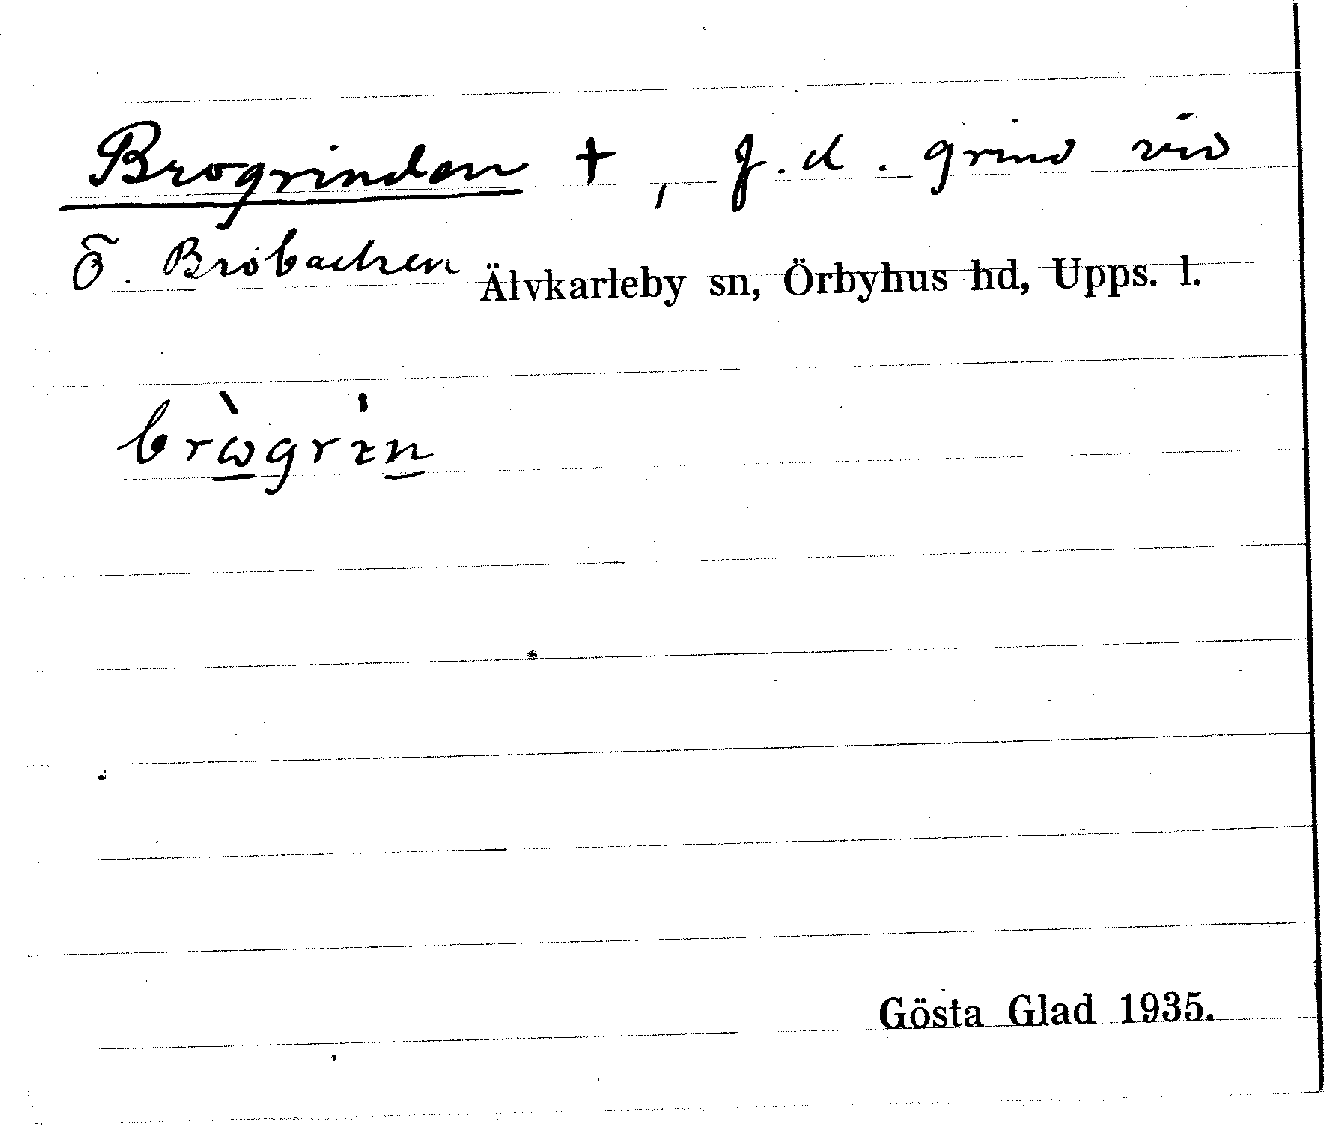 Brogrinden †, f.d. grind vid
Ö. Brobacken Älvkarleby sn, Örbyhus hd, Upps. l.
brὼ̲grı̍n̲
Gösta Glad 1935.